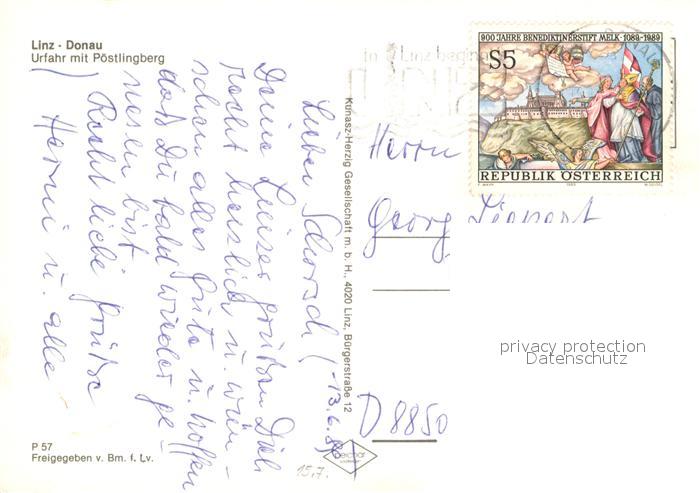 Linz - Donau
Urfahr mit Pöstlingberg
900 JAHRE BENEDIKTINERSTIFT MELK · 1089 - 1989
S5
REPUBLIK ÖSTERREICH
in Linz beginnt
Lieber Schorsch! 13.6.89
Deine Linzer grüßen Dich
recht herzlich u. wün-
schen alles Gute u. hoffen
daß Du bald wieder ge-
nesen bist
Recht liebe Grüße
u. alle
Kunasz-Herzig Gesellschaft m. b. H., 4020 Linz, Bürgerstraße 12
Herrn
Georg
D 8850
privacy protection
Datenschutz
P 57
Freigegeben v. Bm. f. Lv.
15.7.